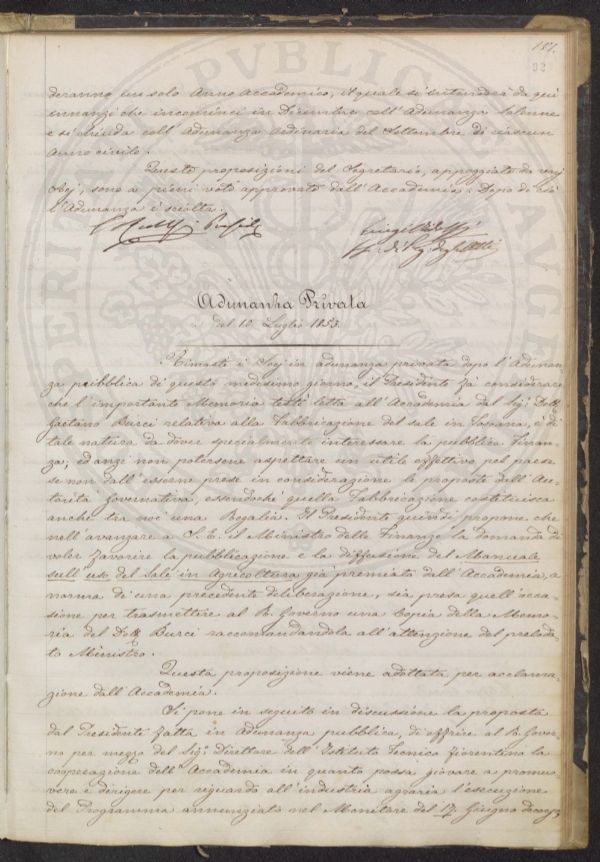 187.
92
deranno un solo Anno Accademico, il quale si intenderà da qui
innanzi che incominci in Dicembre coll'Adunanza Solenne
e si chiuda coll'Adunanza ordinaria del Settembre di ciascun
anno civile.
Queste proposizioni del Segretario, appoggiate da varj
Socj, sono a pieni voti approvate dall'Accademia. Dopo di ciò
l'Adunanza è sciolta.
Adunanza Privata
del 10. Luglio 1853.
Rimasti i Socj in adunanza privata dopo l'Adunan-
za pubblica di questo medesimo giorno, il Presidente fa considerare
che l'importante Memoria testè letta all'Accademia dal Sig. Dott.
Gaetano Burci relativa alla Fabbricazione del sale in Toscana, è di
tale natura da dover specialmente interessare la pubblica Finan-
za; ed anzi non potersene aspettare un utile effettivo pel paese
se non dall'esserne prese in considerazione le proposte dell'Au-
torità Governativa, essendochè quella Fabbricazione costituisca
anche tra noi una Regalia. Il Presidente quindi propone che
nell'avanzare a S. E. il Ministro delle Finanze la domanda di
voler favorire la pubblicazione e la diffusione del Manuale
sull'uso del Sale in Agricoltura già premiato dall'Accademia, a
norma di una precedente deliberazione, sia presa quell'occa-
sione per trasmettere al R. Governo una Copia della Memo-
ria del Dott. Burci raccomandandola all'attenzione del preloda-
to Ministro.
Questa proposizione viene adottata per acclama-
zione dall'Accademia.
Si pone in seguito in discussione la proposta
dal Presidente fatta in Adunanza pubblica, di offrire al R. Gover-
no per mezzo del Sig. Direttore dell'Istituto Tecnico fiorentino la
cooperazione dell'Accademia in quanto possa giovare a promuo-
vere e dirigere per riguardo all'industria agraria l'esecuzione
del Programma annunziato nel Monitore del 17 Giugno decorso